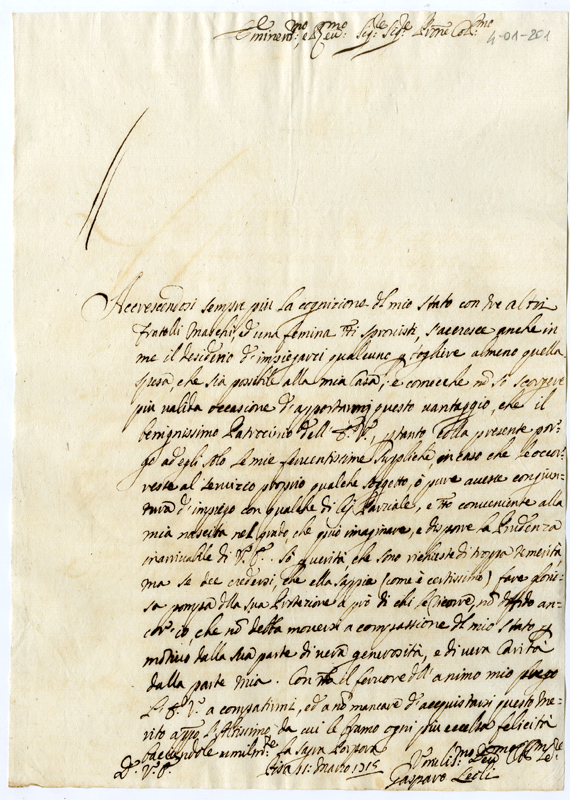 Eminen.mo e Rev.mo Sig.re Sig.re P.rone Col.mo
4-01-201
Accrescendosi sempre più la cognizione del mio stato con tre altri
fratelli maschi, ed una femina tti sprovisti, s'accresce anche in
me il desiderio d'impiegarci qualcuno p togliere almeno quella
spesa, che sia possibile alla mia Casa; e conosche nõ so scorgere
più valida occasione d'apportarmi questo vantaggio, che il
benignissimo Patrocinio dell' E. V., p tanto colla presente por-
go ad essa le mie ferventissime supliche in caso che le occor-
resse al servizio proprio qualche soggetto, ò pure avesse congiun-
tura d'impiego con qualche di Lei Parziale, e tto conveniente alla
mia nascita nel grado, che può imaginare, e disporre la Prudenza
inarrivabile di V. E. Sò p verità, che sono richieste di troppa temerità,
ma se dee credersi, che ella sappia (come è certissimo) fare glorio-
sa pompa della sua Protezione à prò di chi le ricorre, nõ diffido an-
cor io, che nõ debba moversi a compassione del mio stato p
motivo dalla sua parte di vera generosità, e di vera Carità
dalla parte mia. Con tto il fervore dell' animo mio prego
l' E. V. a compatirmi, ed a nõ mancare d'acquistarsi questo me-
rito appo l'Altissimo da cui le bramo ogni più eccelsa felicità
baciandole umilm.te la Sacra Porpora
D. V. E. Pisa 11: Marzo 1715 Umiliss.mo Dev.mo Obl.mo Se.re
Gasparo Leoli